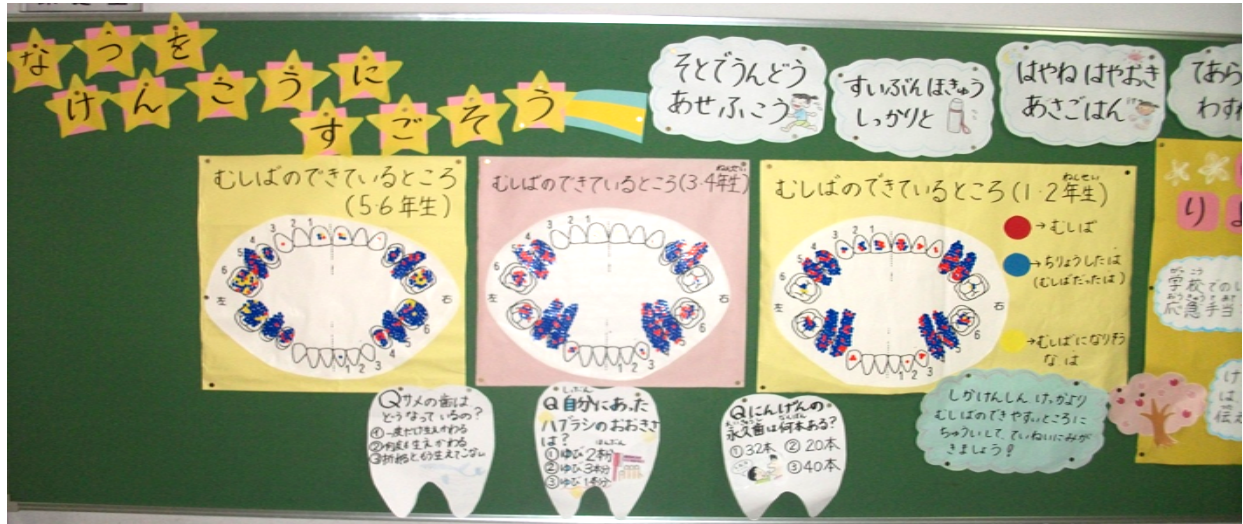 なつを
けんこうに
すごそう
そとでうんどう
あせふこう
すいぶんほきゅう
しっかりと
はやねはやおき
あさごはん
てあら
わすれ
むしばのできているところ
(5·6年生)
むしばのできているところ(3·4年生)
ねんせい
むしばのできているところ(1·2年生)
ねんせい
→むしば
→ちりょうしたは
(むしばだったは)
→むしばになりそう
なは
左
右
左
右
左
右
り
学校でのし
がっこう
応急手当
おうきゅうてあて
Qサメの歯は
どうなっているの?
①一度だけ生えかわる
②何度も生えかわる
③折れるともう生えてこない
Q自分にあった
じぶん
ハブラシのおおきさ
は?
①ゆび2本分
②ゆび3本分
③ゆび1本分
ほんぶん
Qにんげんの
永久歯は何本ある?
①32本 ②20本
③40本
しかけんしんけっかより
むしばのできやすいところに
ちゅういして、ていねいにみが
きましょう!
け
は
伝え